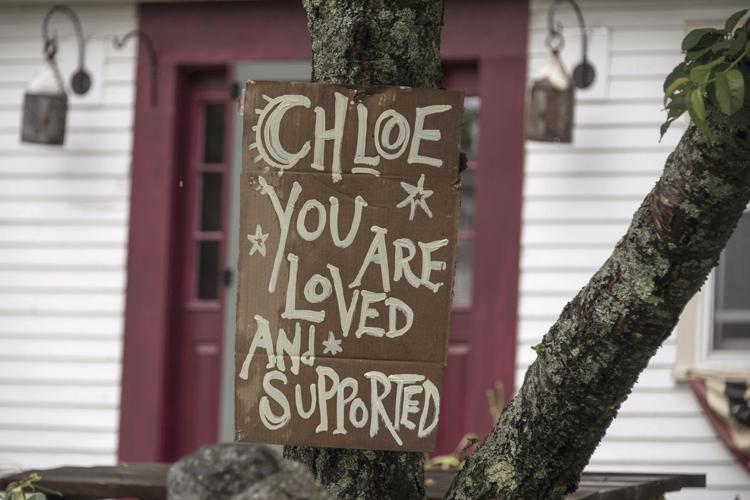 CHLOE
YOU
ARE
LOVED
AND
SUPPORTED